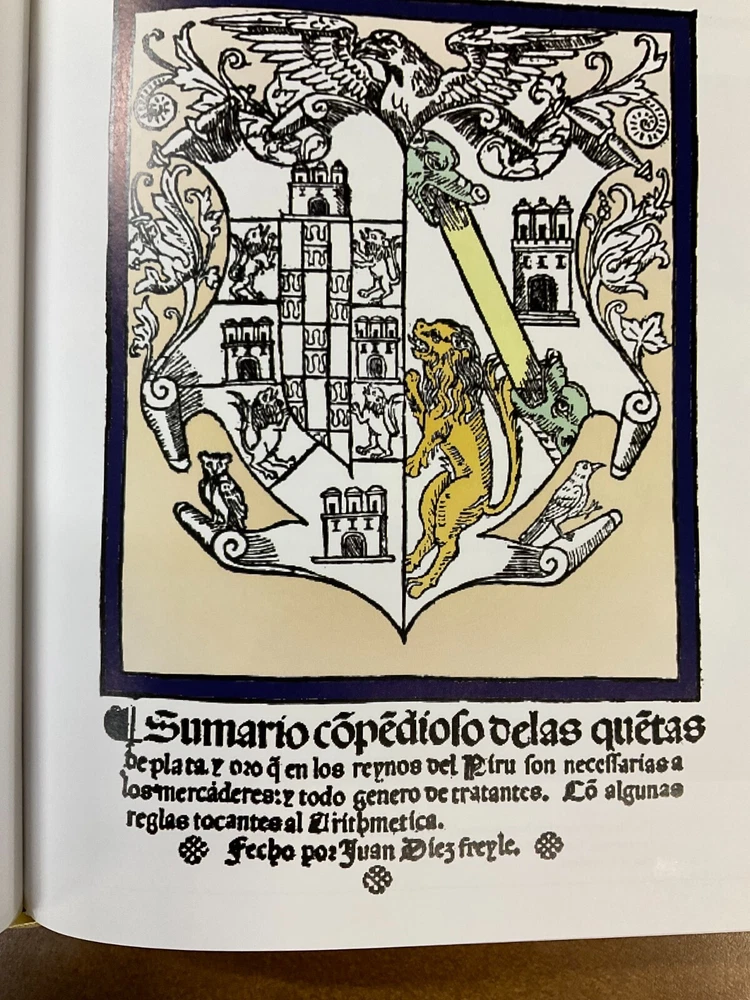 ¶ Sumario cõpẽdioſo delas quẽtas
de plata ⁊ oro q̃ en los reynos del Piru ſon neceſſarias a
los mercaderes: ⁊ todo genero de tratantes. Cõ algunas
reglas tocantes al Arithmetica.
Fecho por Juan Diez freyle.